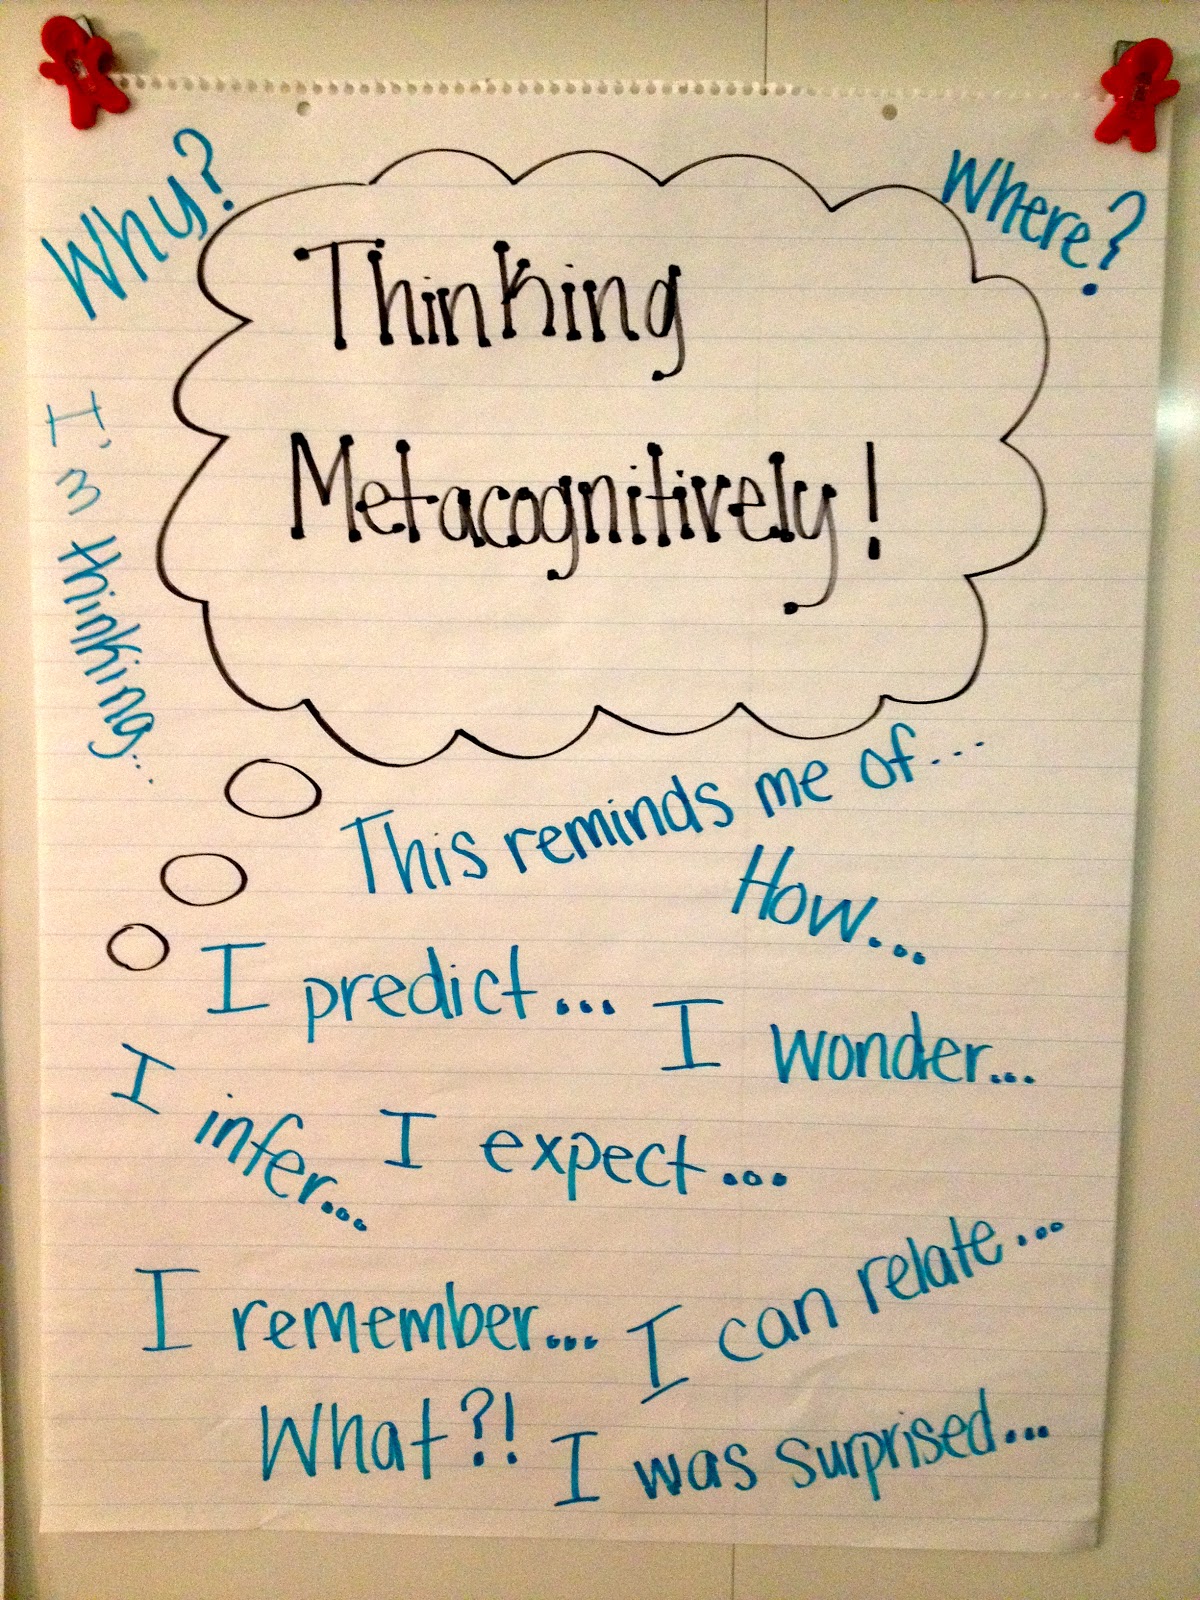 Why?
Where?
Thinking
Metacognitively!
I'm thinking...
This reminds me of...
How...
I predict...
I wonder...
I infer...
I expect...
I remember...
I can relate...
What?!
I was surprised...